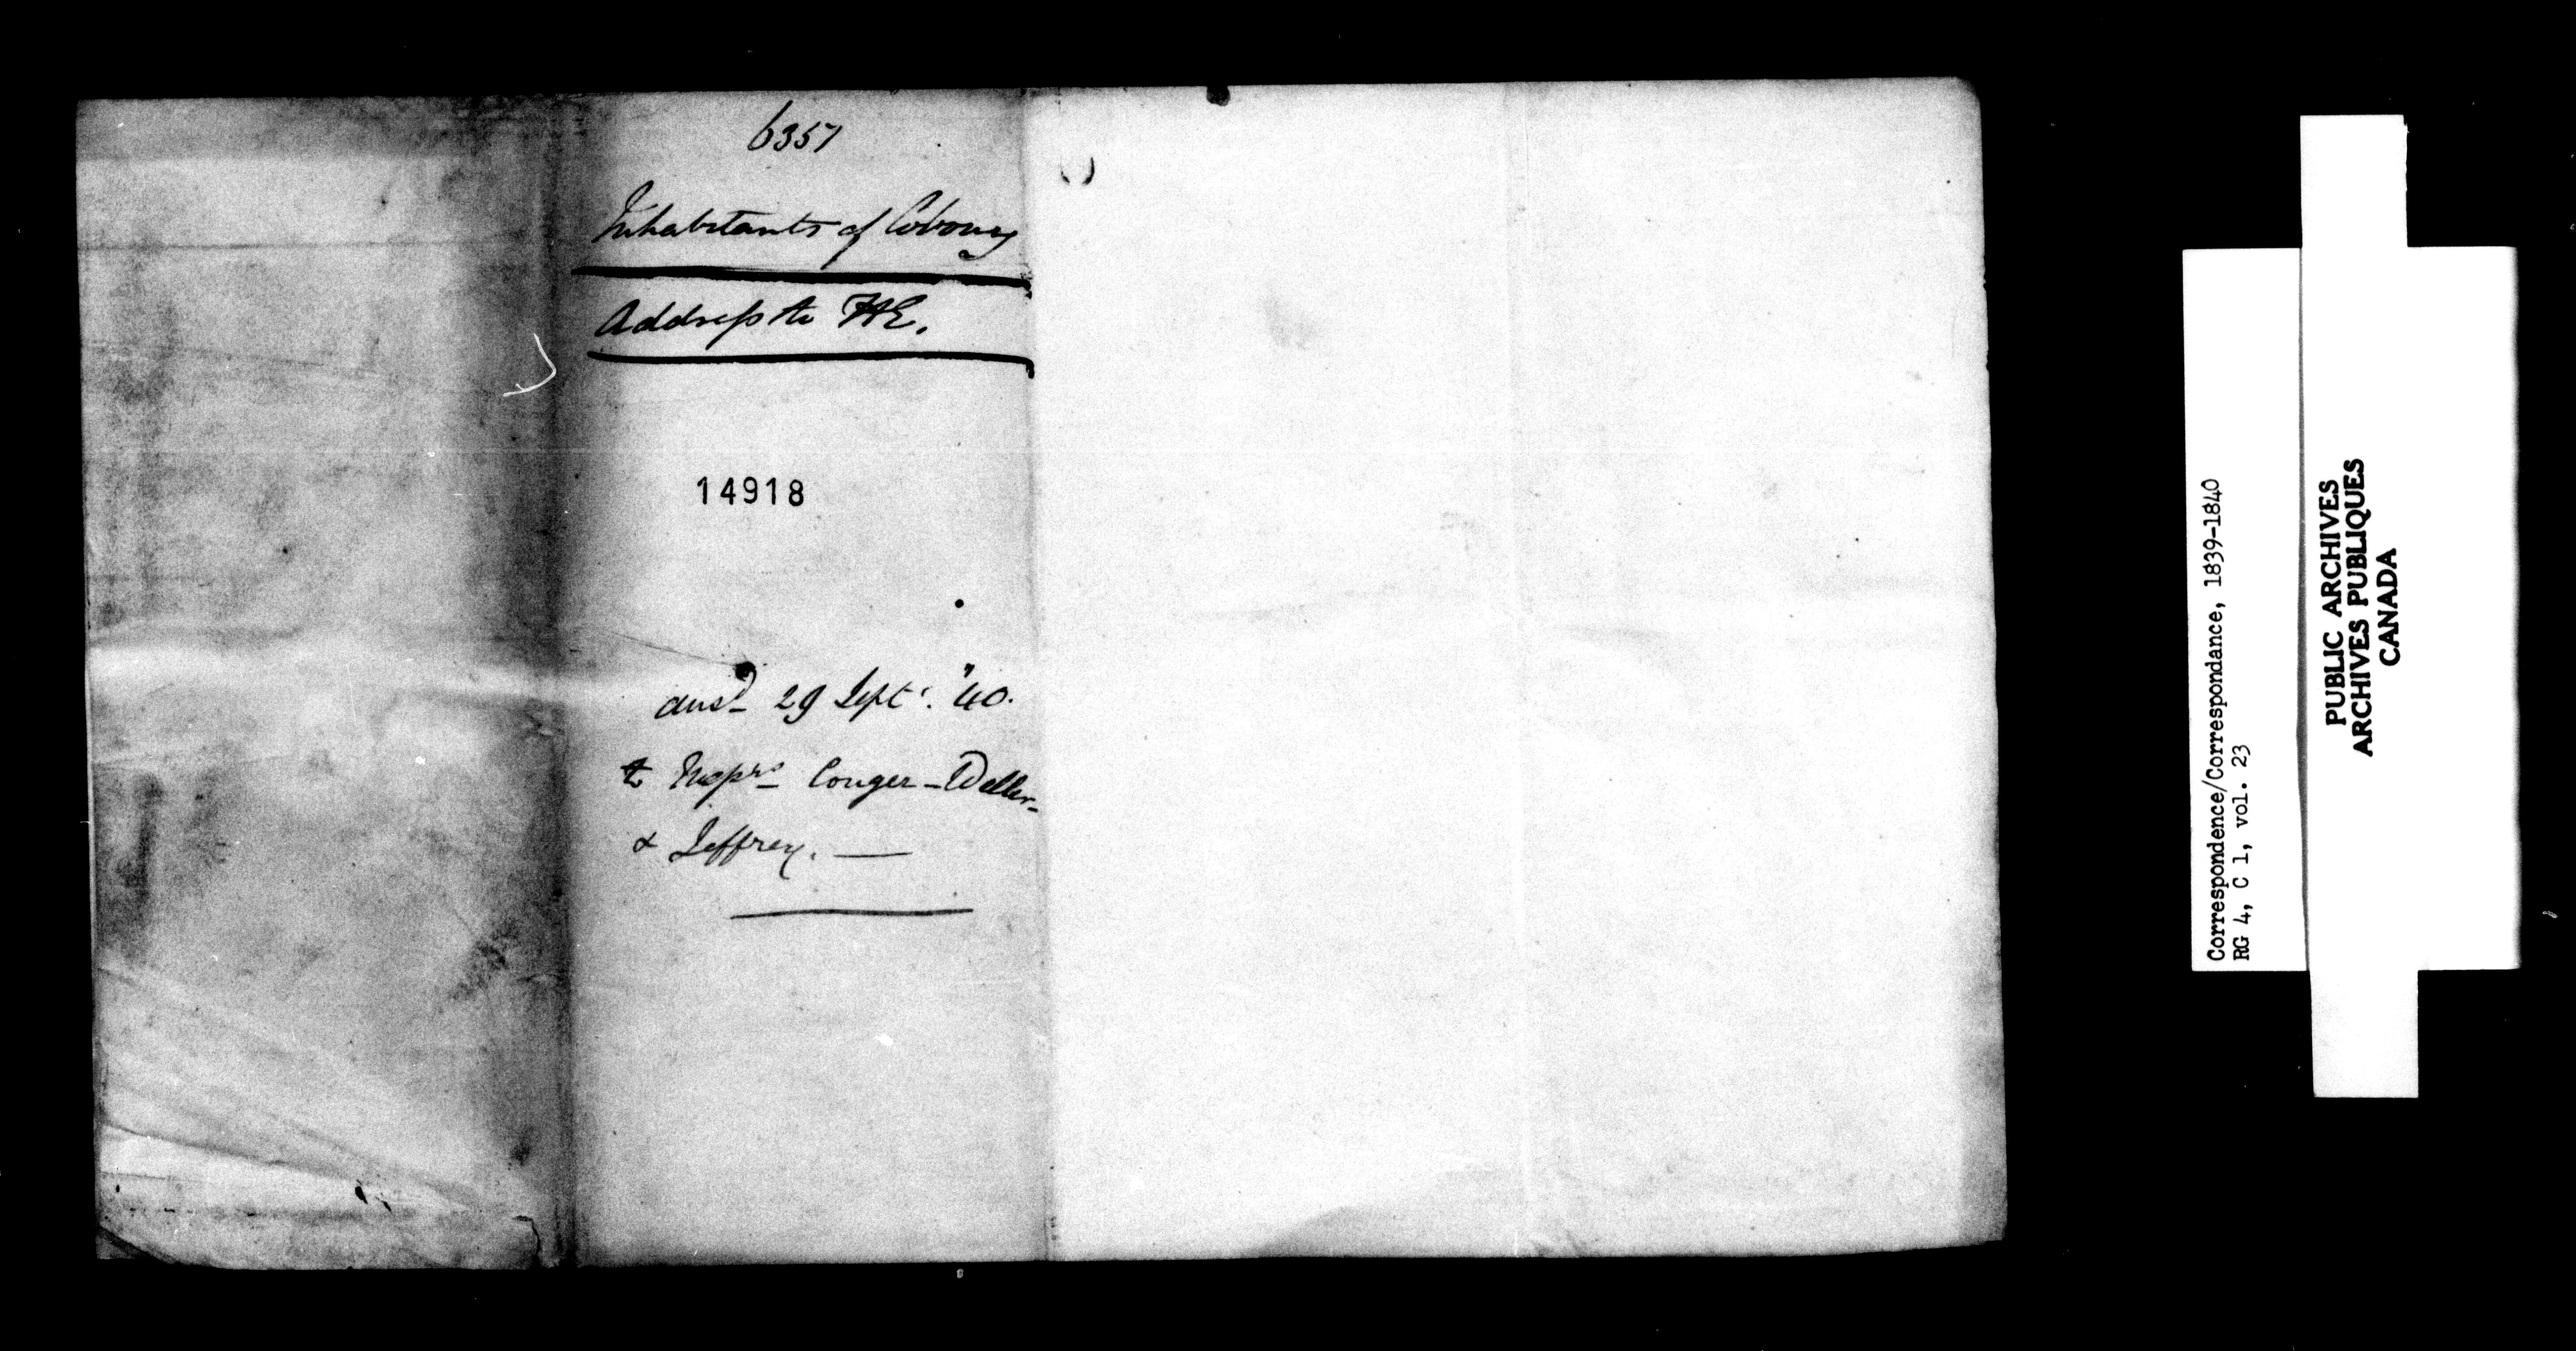 6357
Inhabitants of Cobourg
Address to H.E.
14918
ansd 29 Septr. "40.
to Messrs Conger - Weller -
& Jeffrey. —
Correspondence/Correspondance, 1839-1840
RG 4, C 1, vol. 23
PUBLIC ARCHIVES
ARCHIVES PUBLIQUES
CANADA